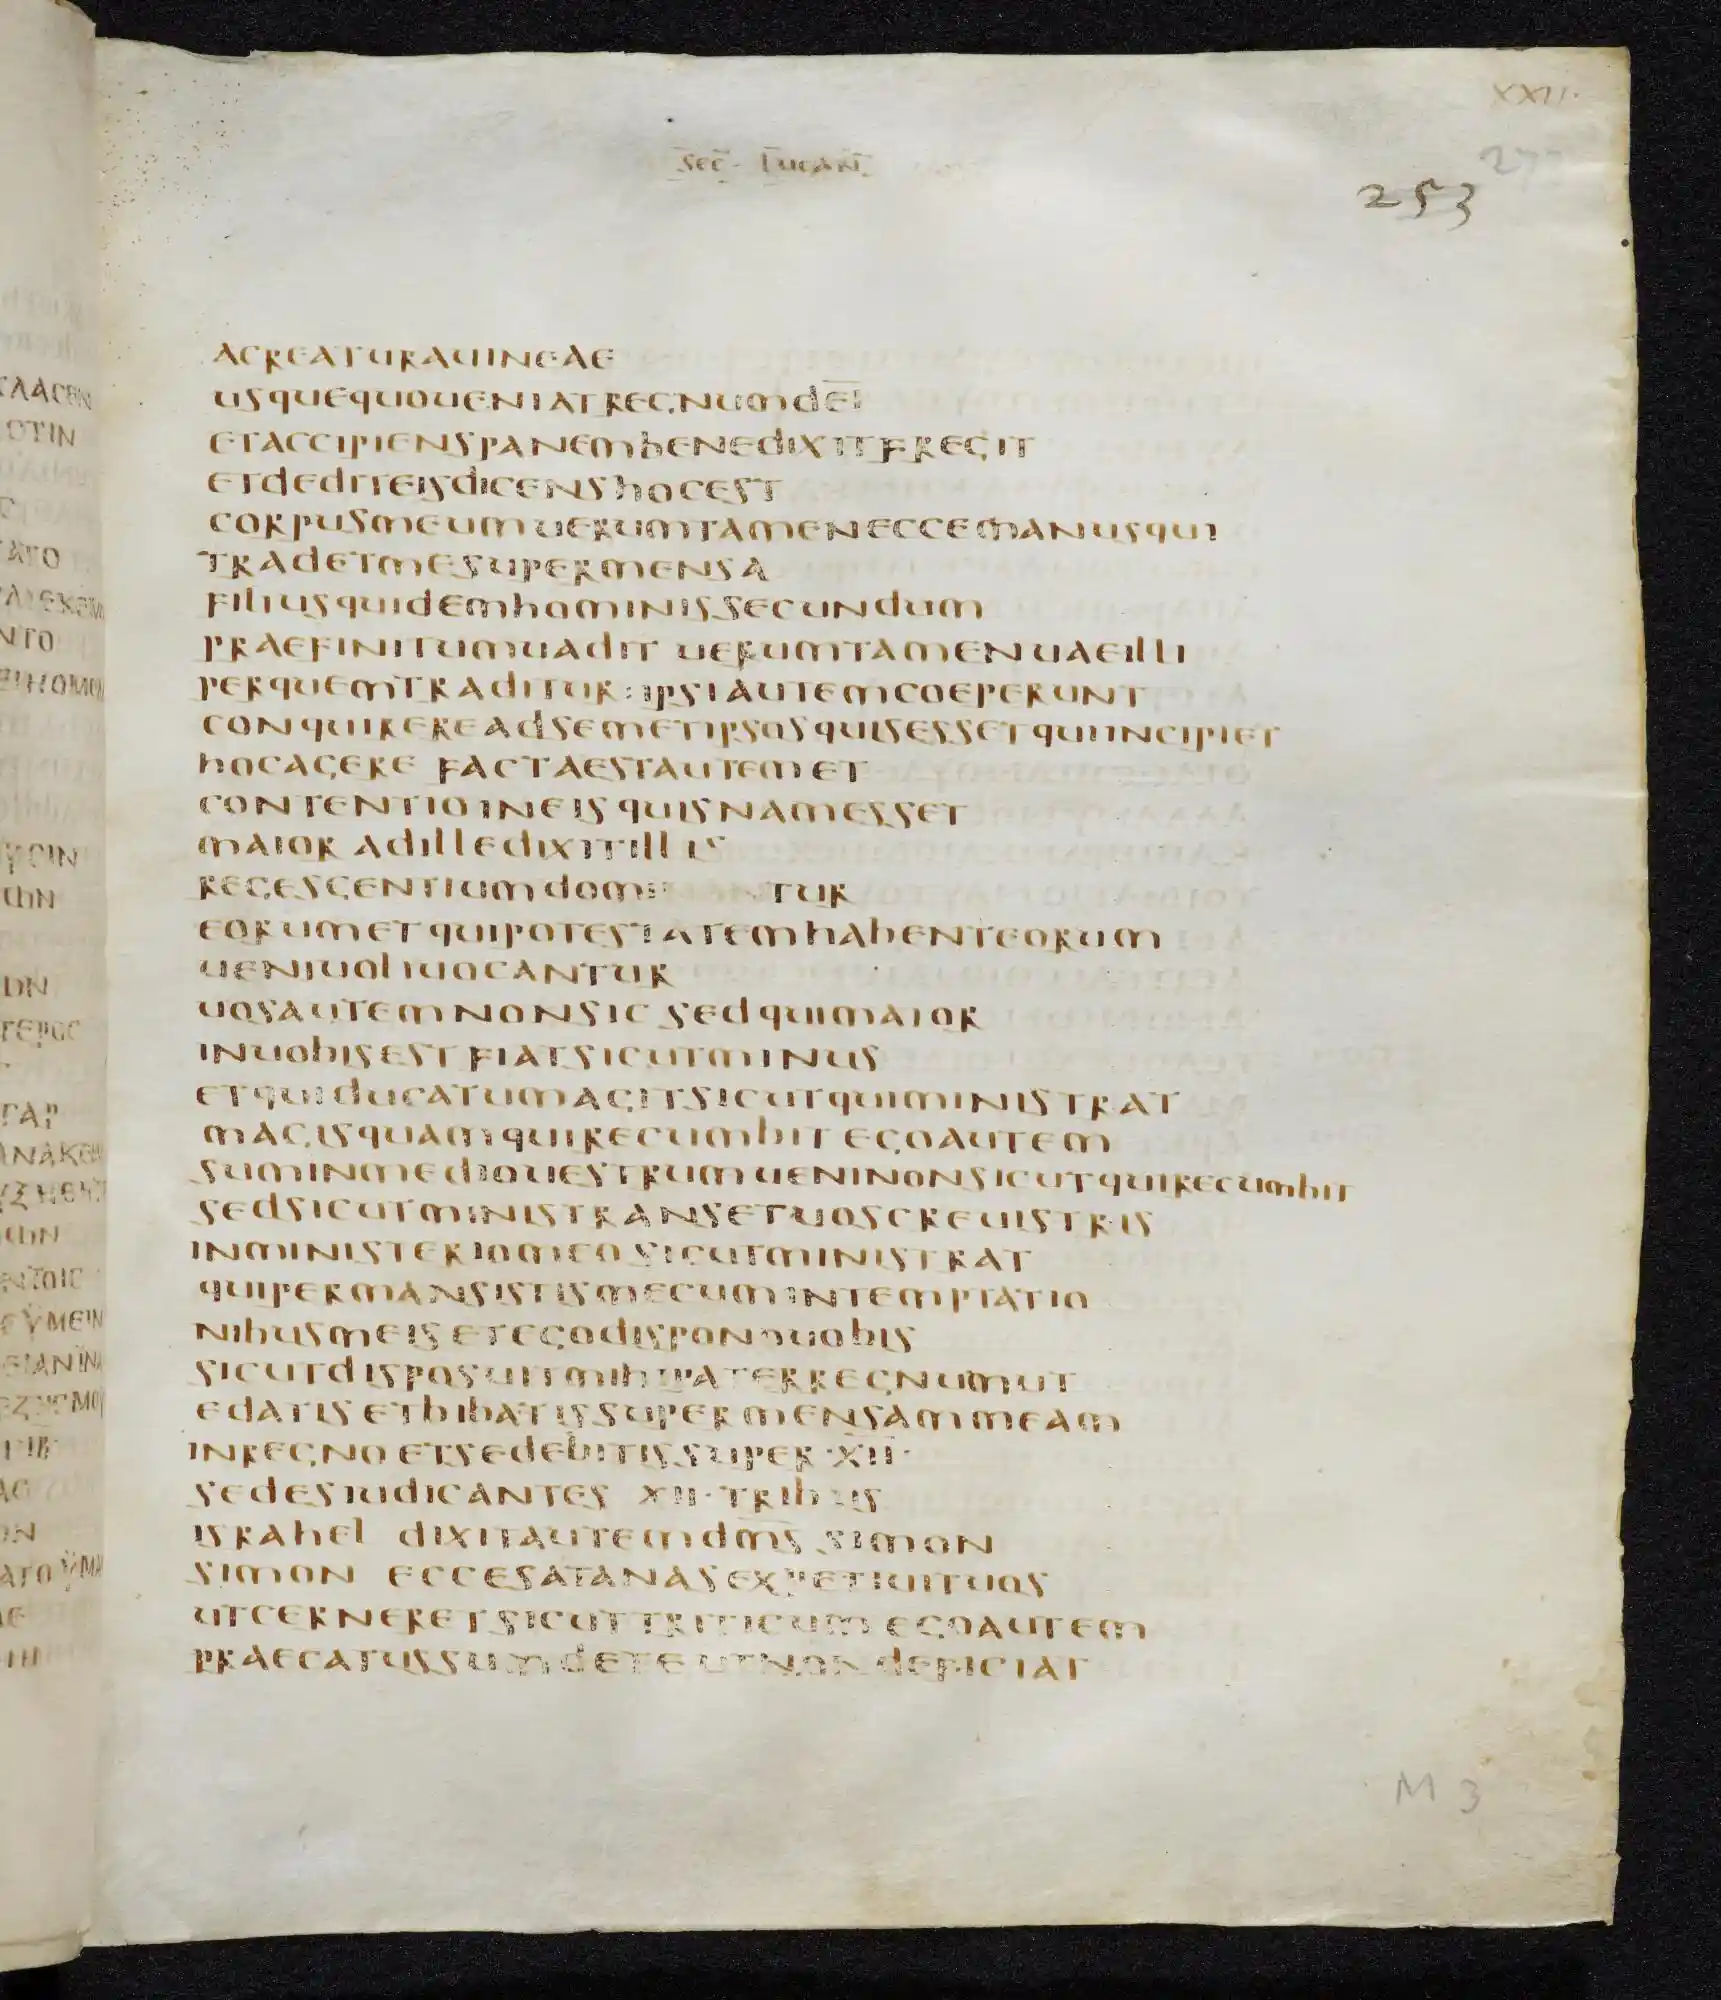 XXII·
SEC̅· LUCAN̅
253
ACREATURAUINEAE
USQUEQUOUENIATREGNUMDE̅I̅
ETACCIPIENSPANEMBENEDIXITFREGIT
ETDEDITEISDICENSHOCEST
CORPUSMEUMUERUMTAMENECCEMANUSQUI
TRADETMESUPERMENSA
FILIUSQUIDEMHOMINISSECUNDUM
PRAEFINITUMUADIT UERUMTAMENUAEILLI
PERQUEMTRADITUR:IPSIAUTEMCOEPERUNT
CONQUIREREADSEMETIPSOSQUISESSETQUIINCIPIET
HOCAGERE FACTAESTAUTEMET
CONTENTIOINEISQUISNAMESSET
MAIOR ADILLEDIXITILLIS
REGESGENTIUMDOMINANTUR
EORUMETQUIPOTESTATEMHABENTEORUM
UENIUOLIUOCANTUR
UOSAUTEMNONSIC SEDQUIMAIOR
INUOBISEST FIATSICUTMINUS
ETQUIDUCATUMAGITSICUTQUIMINISTRAT
MAGISQUAMQUIRECUMBIT EGOAUTEM
SUMINMEDIOUESTRUMUENINONSICUTQUIRECUMBIT
SEDSICUTMINISTRANSETUOSCREUISTRIS
INMINISTERIOMEO SICUTMINISTRAT
QUIPERMANSISTISMECUMINTEMPTATIO
NIBUSMEISETEGODISPONOUOBIS
SICUTDISPOSUITMIHIPATERREGNUMUT
EDATISETBIBATISSUPERMENSAMMEAM
INREGNO ETSEDEBITISSUPER ·XII·
SEDESIUDICANTES XII·TRIBUS
ISRAHEL DIXITAUTEMDM̅S SIMON
SIMON ECCESATANASEXPETIUITUOS
UTCERNERETSICUTTRITICUM EGOAUTEM
PRAECATUSSUMDETEUTNON DEFICIAT
M 3